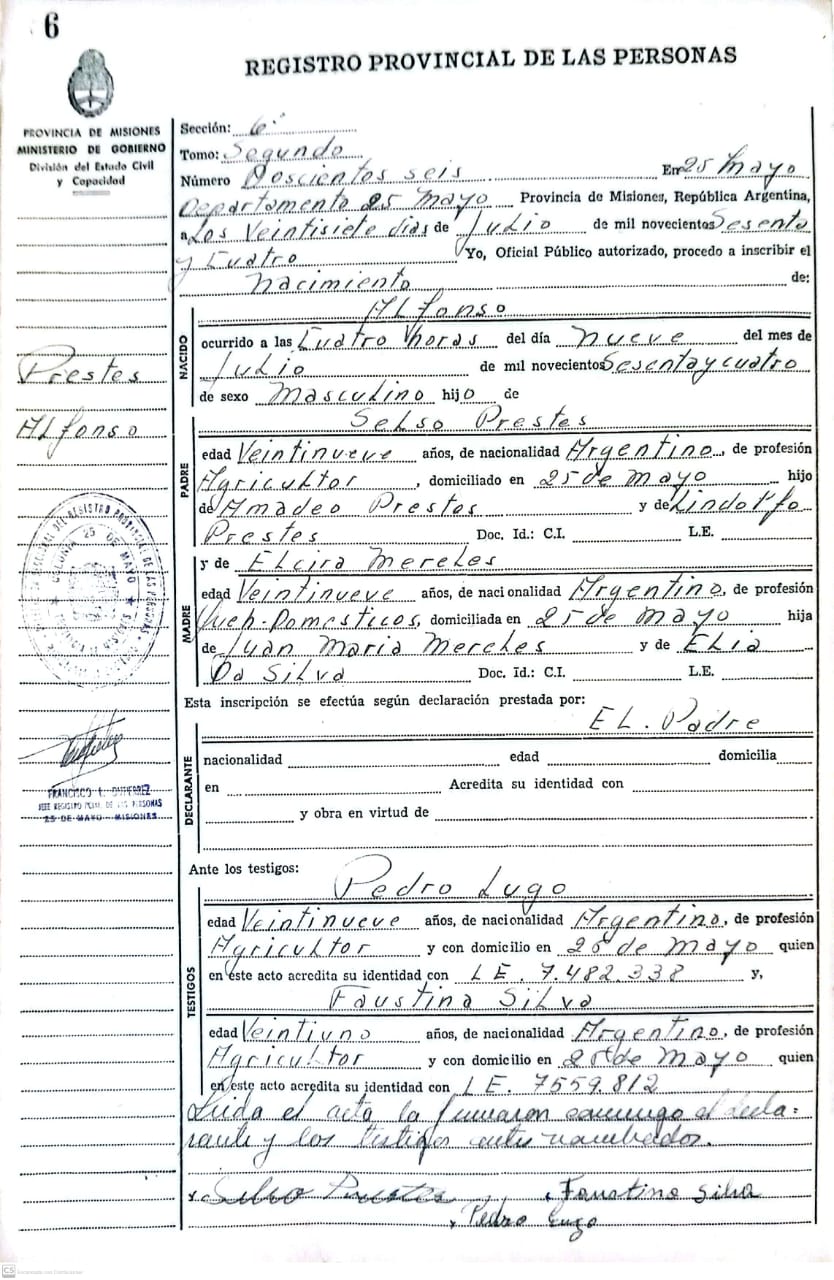 6
REGISTRO PROVINCIAL DE LAS PERSONAS
PROVINCIA DE MISIONES
MINISTERIO DE GOBIERNO
División del Estado Civil
y Capacidad
Sección: 6ª
Tomo: Segundo
Número Doscientos seis En 25 Mayo
Departamento 25 Mayo Provincia de Misiones, República Argentina,
a Los Veintisiete dias de Julio de mil novecientos Sesenta
y Cuatro Yo, Oficial Público autorizado, procedo a inscribir el
Nacimiento de:
Prestes
Alfonso
NACIDO
Alfonso
ocurrido a las Cuatro horas del día nueve del mes de
Julio de mil novecientos Sesenta y cuatro
de sexo Masculino hijo de
PADRE
Selso Prestes
edad Veintinueve años, de nacionalidad Argentino, de profesión
Agricultor, domiciliado en 25 de Mayo hijo
de Amadeo Prestes y de Lindolfo
Prestes Doc. Id.: C.I. L.E.
MADRE
y de Elcira Mereles
edad Veintinueve años, de nacionalidad Argentino, de profesión
Domesticos, domiciliada en 25 de Mayo hija
de Juan Maria Mereles y de Elia
Da Silva Doc. Id.: C.I. L.E.
Esta inscripción se efectúa según declaración prestada por:
El. Padre
DECLARANTE
nacionalidad edad domicilia
en Acredita su identidad con
y obra en virtud de
COLONIA 25 DE MAYO
FRANCISCO GUTIERREZ
JEFE REGISTRO PCIAL. DE LAS PERSONAS
25 DE MAYO - MISIONES
Ante los testigos:
TESTIGOS
Pedro Lugo
edad Veintinueve años, de nacionalidad Argentino, de profesión
Agricultor y con domicilio en 25 de Mayo quien
en este acto acredita su identidad con LE. 7.482.338 y,
Faustina Silva
edad Veintiuno años, de nacionalidad Argentino, de profesión
Agricultor y con domicilio en 25 de Mayo quien
en este acto acredita su identidad con LE. 7559.812
Leida el acta la firmaron conmigo el decla-
rante y los testigos antes nombrados.
Selso Prestes Faustino Silva
Pedro Lugo
CS